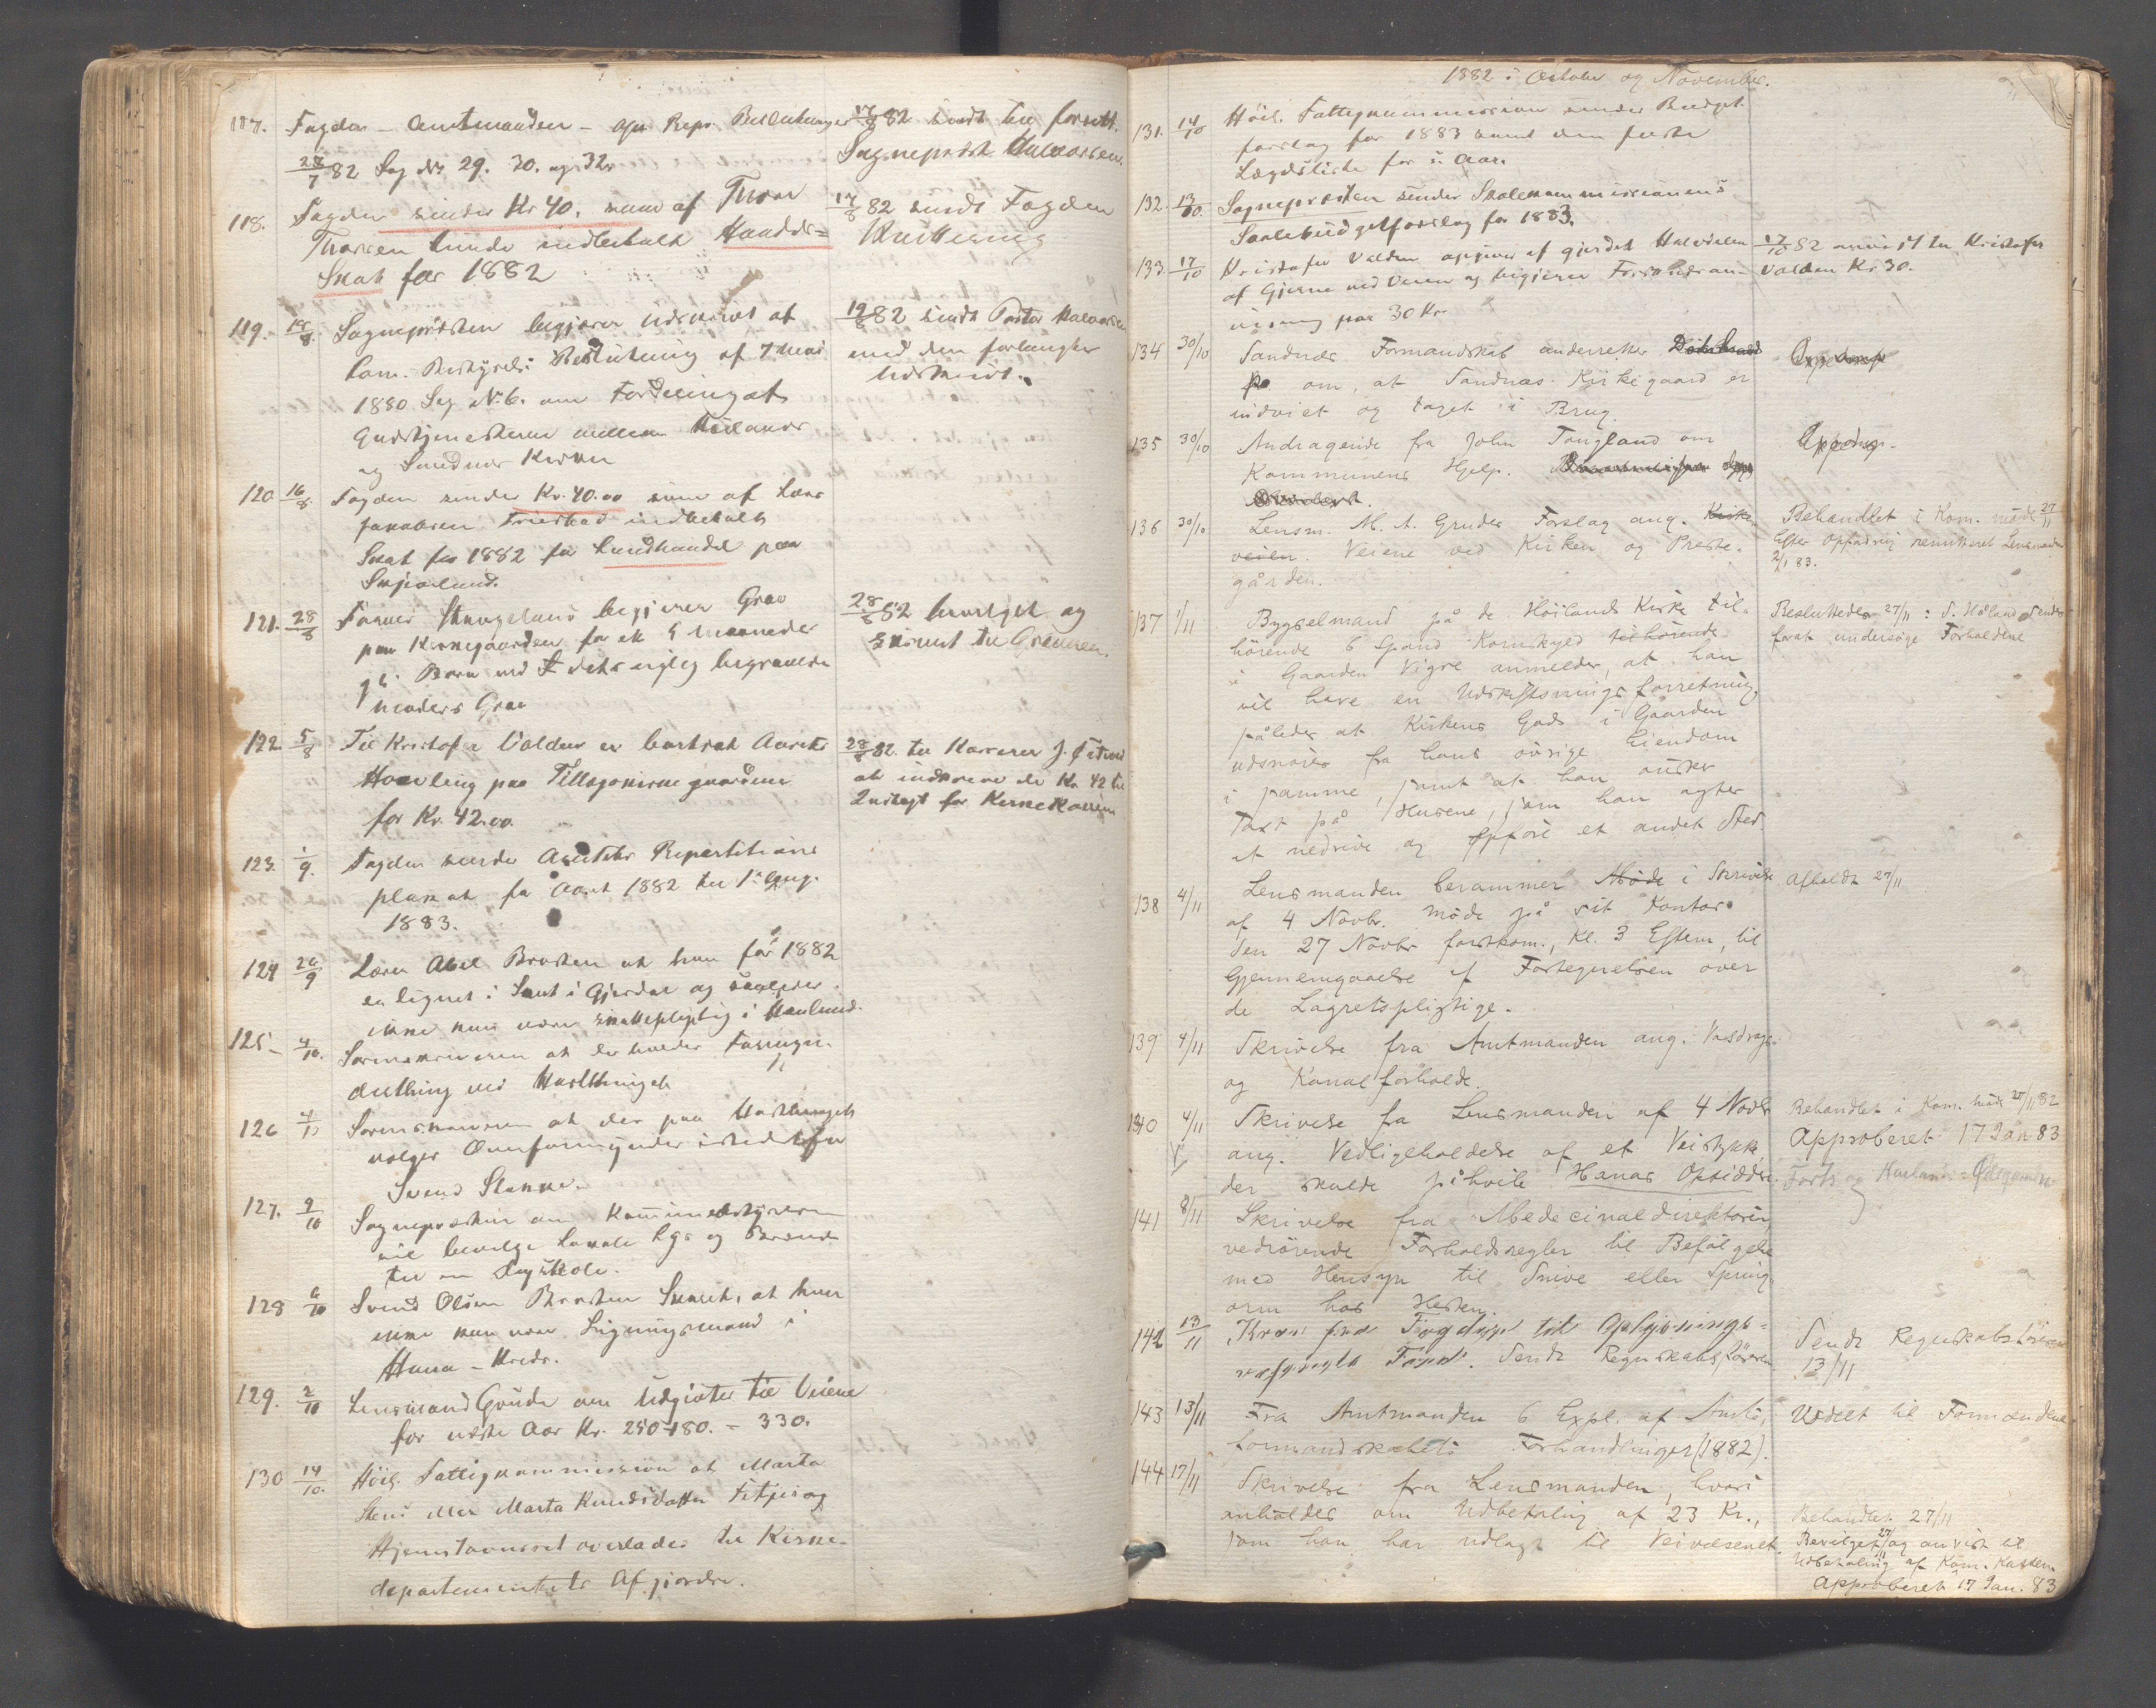 117. Fogden - Amtmanden - Repr. Beslutninger
27/7 82 Sag No 29. 30. og 32.
17/8 82 sendt til
Sognepræst Halvorsen.
118. Fogden sender Kr 40, som af Thore
Thorsen Lunde indbetalt Handels=
Skat for 1882
17/8 82 sendt Fogden
Kvittering
119. 18/8. Sognepræsten begjærer Udskrivt af
Kom. Bestyrels: Beslutning af 7 Mai
1880 Sag No 6. om Fordeling af
Gudstjenesterne mellem Höilands
og Sandnes Kirker
19/8 82 sendt Pastor Halvorsen
med den forlangte
Udskrivt.
120. 16/8 Fogden sender Kr. 40.00 som af Lars
Jakobsen indbetalt
Skat for 1882 for Landhandel paa
Skjæveland.
121. 28/8 Stangeland begjærer Grav
paa Kirkegaarden for et 5 Maaneder
gl. Barn ved dets nylig begravede
Moders Grav
28/8 82 bevilget og
skrevet til Graveren.
122. 5/8 Til Kristofer Valden er bortsat Aarets
paa Tillægskirkegaardene
for Kr. 42.00
28/8 82. til Kasserer J.
at indkræve de Kr 42 til
Indtægt for Kirkekassen
123. 1/9. Fogden sender Amtets Repartitions
plakat for Aaret 1882 til
1883.
124 26/9 Lærer Abel Brosten at han för 1882
er lignet i Skat i Gjesdal og saaledes
ikke kan være skattepligtig i Høiland.
125- 4/10. Sorenskriveren at der holdes
ved Høstthinget
126 4/10 Sorenskriveren at der paa Høstthinget
vælges Overformynder istedetfor
Svend
127. 9/10 Sognepræsten om Kommunebestyrelsen
vil bevilge Lokale Lys og Brænde
til en
128 6/10 Svend Olsen Brosten at han
ikke kan være Ligningsmand i
Hana - Kreds.
129. 2/10 Lensmand Grude om Udgivter til Veiene
for næste Aar Kr. 250+80. - 330.
130 14/10. Höil. Fattigkommission at Marta
Marta Knudsdatter
Hjemstavnsret overlades til Kirke-
departementets Afgjørelse.
1882 i October og November.
131. 14/10 Höil. Fattigkommission sender Budget
forslag for 1883 samt den
Lægdsliste for i. Aar.
132. 13/10. Sognepræsten sender Skolekommissionens
Skolebudgetforslag for 1883.
133. 17/10 Kristofer Valden opgiver af gjerdet Halvdelen
af Gjerne ved Veien og begjerer Forskudsan-
visning paa 30 Kr.
17/10 82 anvist til Kristofer
Valden Kr 30.
134 30/10 Sandnæs Formandskab underretter
om, at Sandnæs Kirkegaard er
indviet og taget i Brug.
135 30/10 Andragende fra John Tengland om
Kommunens Hjelp.
136 30/10 Lensm. M. A. Grudes Forslag ang. Kirke-
veien. Veiene ved Kirken og Præste-
gården.
Behandlet i Kom. möde 27/11
Efter Opfodring remitteret Lensmanden
2/1 83.
137 1/11 Bygselmand på de Höilands Kirke til-
hörende 6 Spand Kornskyld tilhörende
i Gaarden Vigre anmelder, at han
vil have en Udskiftningsforretning
påledes at Kirkens Gods i Gaarden
udskoires fra hans övrige Eiendom
i samme, samt at han önsker
Taxt på Husene, som han agter
at nedrive og opføre et andet Sted.
Besluttedes 27/11: S. Höland sendes
forat undersöge Forholdene
138 4/11 Lensmanden berammer Möde i Skrivelse
af 4 Novbr. möde på sit Kontor
den 27 Novbr førstkom., Kl. 3 Efterm, til
Gjennemgaaelse af Fortegnelsen over
de Lagretspligtige.
Afholdt 27/11
139 4/11 Skrivelse fra Amtmanden ang. Vasdrags-
og Kanalforholde.
140 4/11 Skrivelse fra Lensmanden af 4 Novbr
ang. Vedligeholdelse af et Veistykke,
der skulde påhvile Hanas Opsiddere.
Behandlet i Kom. möde 27/11 82
Approberet 17 Jan 83
141 8/11 Skrivelse fra Medecinaldirektoren
vedrörende Forholdsregler til Befölgelse
med Hensyn til Snive eller Spring-
orm hos Hesten.
142 13/11 Krav fra Fogden til Oplysnings-
væsenets Fond. Sendt Regnskabsföreren
Sendt Regnskabsföreren
13/11
143 13/11 Fra Amtmanden 6 Expl. af Amts-
formandskabets Forhandlinger (1882).
Uddelt til Formændene.
144 17/11 Skrivelse fra Lensmanden, hvori
anholdes om Udbetaling af 23 Kr.,
som han har udlagt til Veivæsenet.
Behandlet 27/11
Bevilget 27/11 og anvist til
Udbetaling af Kom. Kassen.
Approberet 17 Jan. 83